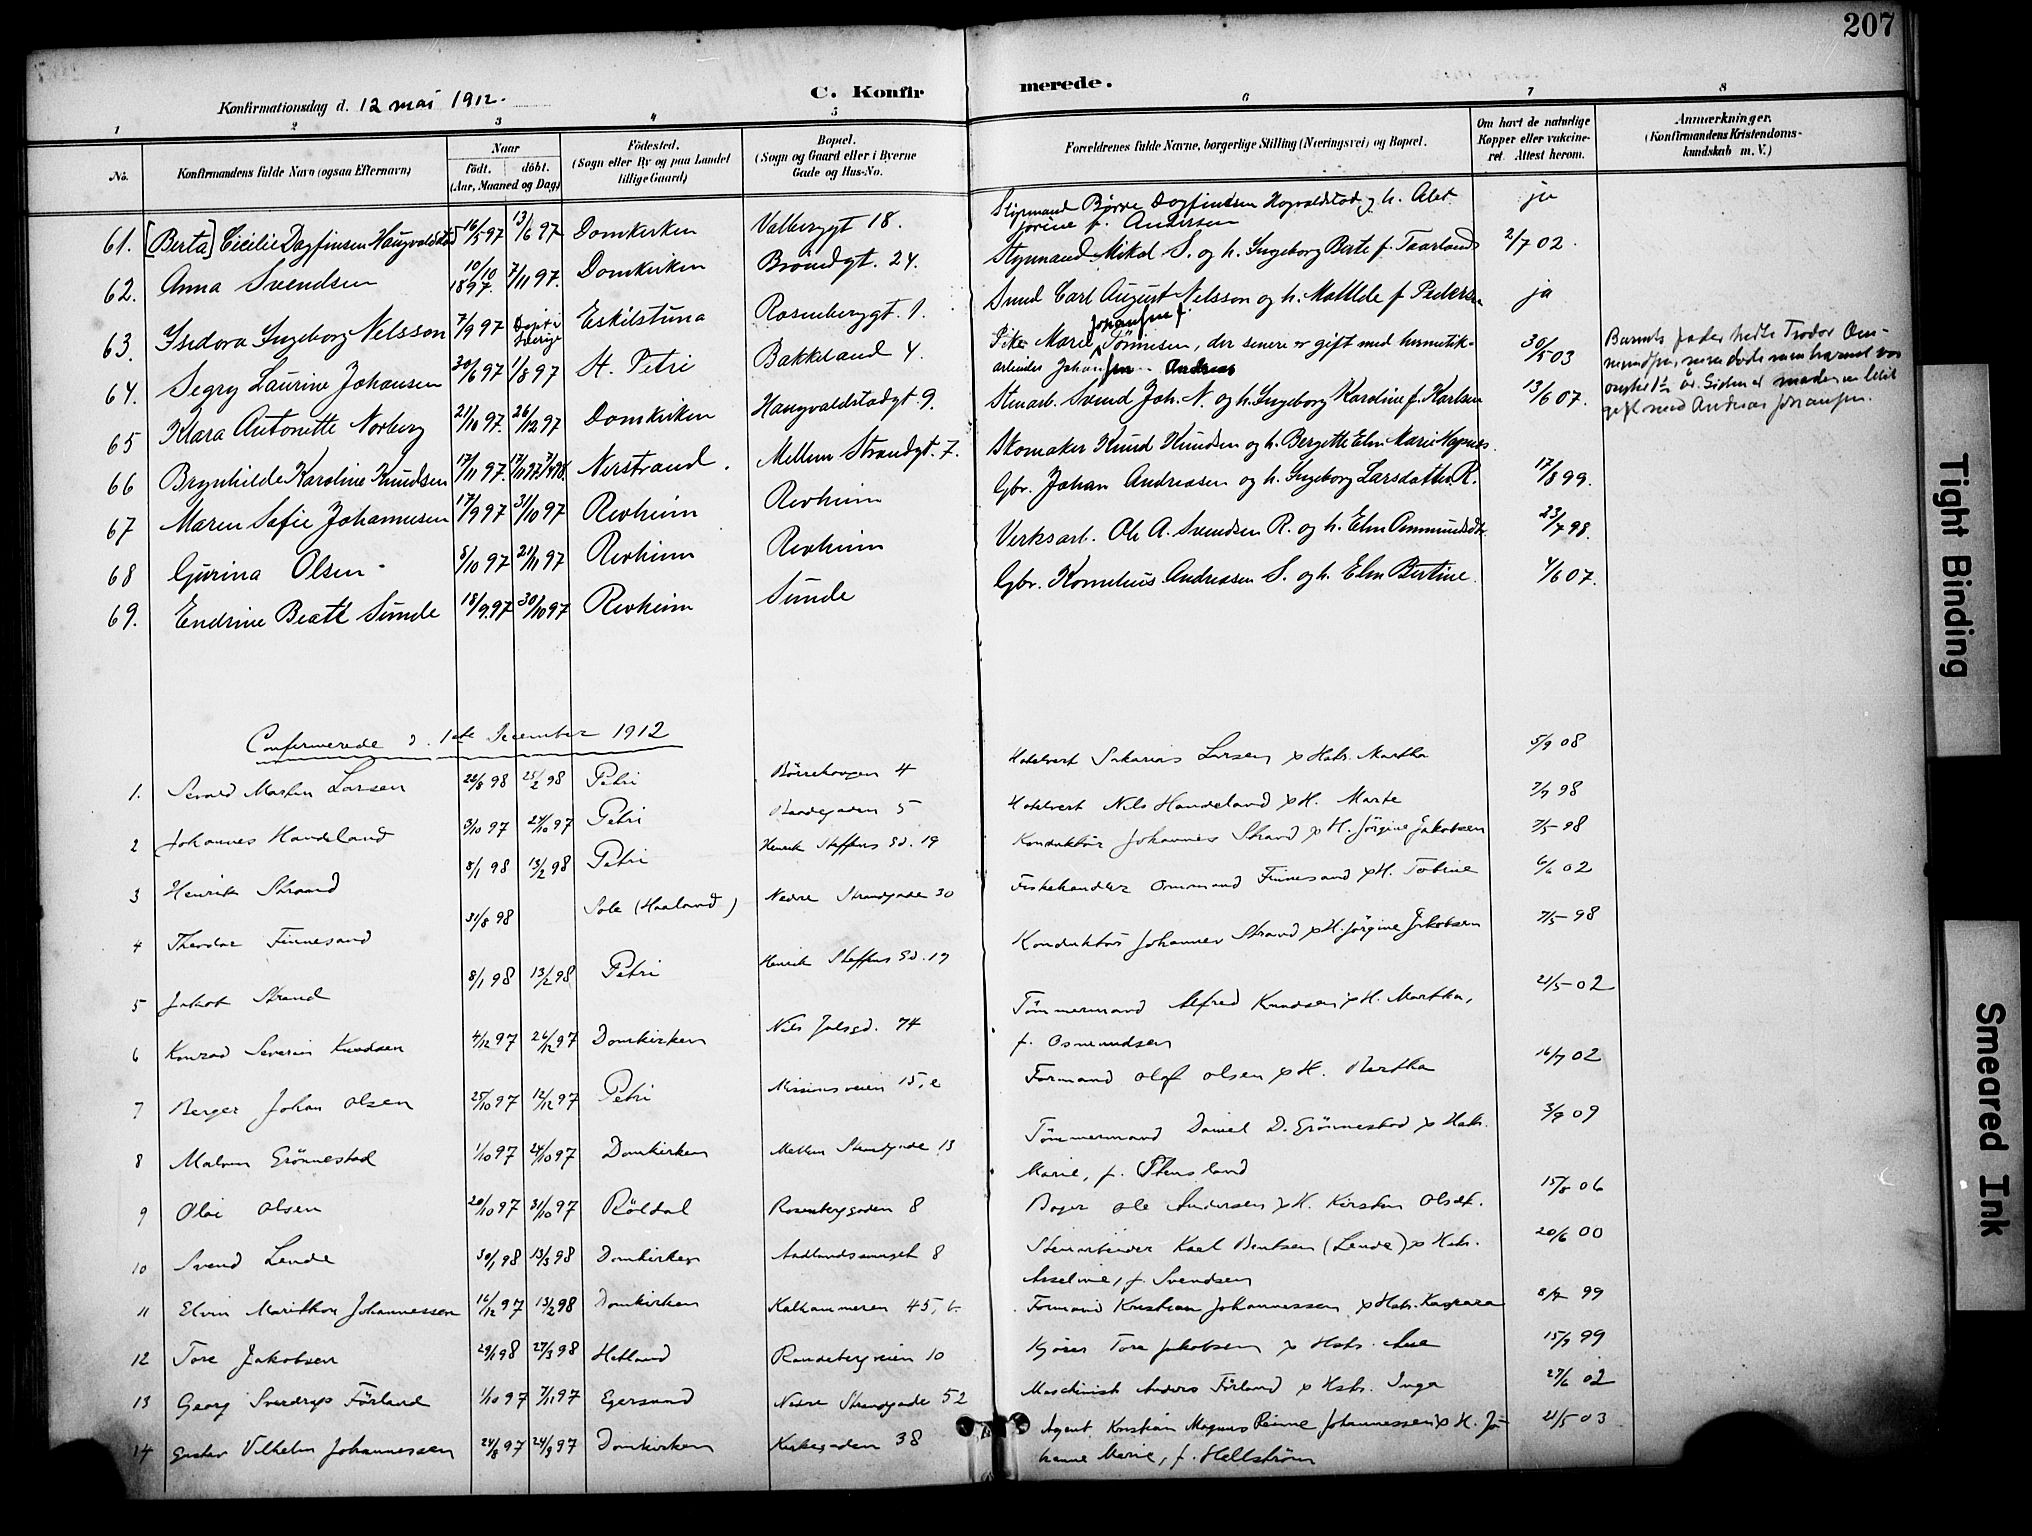 207
Konfirmationsdag d. 12 mai 1912.
C. Konfir
merede.
1 2 3 4 5 6 7 8
No. Konfirmandens fulde Navn (ogsaa Efternavn) Naar født. døbt. (Aar, Maaned og Dag) Fødested. (Sogn eller By og paa Landet tillige Gaard) Bopæl. (Sogn og Gaard eller i Byerne Gade og Hus-No. Forældrenes fulde Navne, borgerlige Stilling (Næringsvei) og Bopæl. Om havt de naturlige Kopper eller vakcineret. Attest herom. Anmærkninger. (Konfirmandens Kristendomskundskab m. V.)
61. [Berta] Cicilie Dagfinsen Haugvaldstad 16/5 97 13/6 97 Domkirken Valbergt 18. Styrmand Børre Dagfinsen Hogvaldstad og h. Alet
Jorine f. Andersen ja
62. Anna Svendsen 10/10 1897. 7/11 97. Domkirken Brøndgt. 24. Styrmand Mikal S. og h. Ingeborg Berte f. Taarland 2/7 02.
63. Isidora Ingeborg Nelsson 7/9 97 Døpt i Sverige Eskilstuna Rosenbergt. 1. Smed Carl August Nelsson og h. Matilde f. Pedersen ja
64. Segry Laurine Johansen 30/6 97 1/8 97 St. Petri Bakkeland 4. Pike Marie Johansen f. Tønnisen, der senere er gift med hermetik-
arbeider Johansen Andreas 30/5 03
Barnets fader hedte Tvodor Om-
65 Klara Antonette Norberg 21/10 97. 26/12 97 Domkirken Haugvaldstadgt. 9. Stenarb. Svend Joh. N. og h. Ingeborg Karoline f. Karlsen 13/6 07.
gift med Andreas Johansen.
66 Brynhilde Karoline Knudsen 17/11 97. Nerstrand. Mellem Strandgt. 7. Skomaker Knud Knudsen og h. Bergitte Elen Marie
67 Maren Sofie Johannesen 17/9 97 31/10 97 Revheim Revheim Gbr. Johan Andreasen og h. Ingeborg Larsdatter R. 17/8 99.
68 Gurina Olsen 8/10 97 21/11 97 Revheim Revheim Verksarb. Ole A. Svendsen R. og h. Elen Ommundsdtr. 23/7 98.
69. Endrine Beate Sunde 18/9.97 30/10 97 Revheim Sunde Gbr. Kornelius Andreasen S. og h. Elen Bertine. 4/6 07.
Confirmerede d. 1ste December 1912
1. Sevald Martin Larsen 25/2 98 Petri Børrehaugen 4 Hotelvert Sakarias Larsen & Hstr. Martha 5/9 08
2 Johannes Handeland 3/10 97 24/10 97 Petri 5 Hotelvert Nils Handeland & H. Marte 7/7 98
3 Henrik Strand 8/1 98 13/2 98 Petri Henrik Steffens Gd. 19 Konduktør Johannes Strand & H. Jørgine Jakobsen 7/5 98
4 Theodor Finnesand 31/8 98 Sole (Haaland) Nedre Strandgade 30 Fiskehandler Ommund Finnesand & H. Tobine 6/6 02
5 Jakob Strand 8/1 98 13/2 98 Petri Henrik Steffens Gd. 19 Konduktør Johannes Strand & H. Jørgine Jakobsen 7/5 98
6 Konrad Severin Knudsen 4/12 97 26/12 97 Domkirken Nils Juelsgd. 74 Tømmermand Alfred Knudsen & H. Martha,
f. Osmundsen 21/5 02
7 Berger Johan Olsen 25/10 97 12/12 97 Petri Missionsveien 15, e Formand Olaf Olsen & H. Martha 16/7 02
8 Malvin Grønnestad 1/10 97 24/10 97 Domkirken Mellem Strandgade 13 Tømmermand Daniel D. Grønnestad & Hstr.
Marie, f. Stensland 3/9 09
9 Olai Olsen 20/10 97 31/10 97 Røldal Rosenberggaden 8 Bager Ole Andersen & H. Kirsten Olsdt. 15/8 06
10 Svend Lende 30/1 98 13/3 98 Domkirken 8 Stenarbeider Karl Bentsen (Lende) & Hstr.
Asseline, f. Svendsen 20/6 00
11 Elvin Marithon Johannessen 16/12 97 13/2 98 Domkirken Kalhammeren 45, b. Formand Kristian Johannessen & Hstr. Kaspara 99
12 Tore Jakobsen 29/1 98 27/3 98 Hetland Randebergveien 10 Kjører Tore Jakobsen & Hstr. Ane 15/9 99
13 Georg Sverdrup Førland 1/10 97 7/11 97 Egersund Nedre Strandgade 52 Maschinist Anders Førland & Hstr. Inga 27/6 02
14 Gustav Vilhelm Johannessen 24/8 97 24/9 97 Domkirken Kirkegaden 38 Agent Kristian Magnus Johannessen & H. Jo-
hanne Marie, f. Hellstrøm 21/5 03
Tight Binding
Smeared Ink